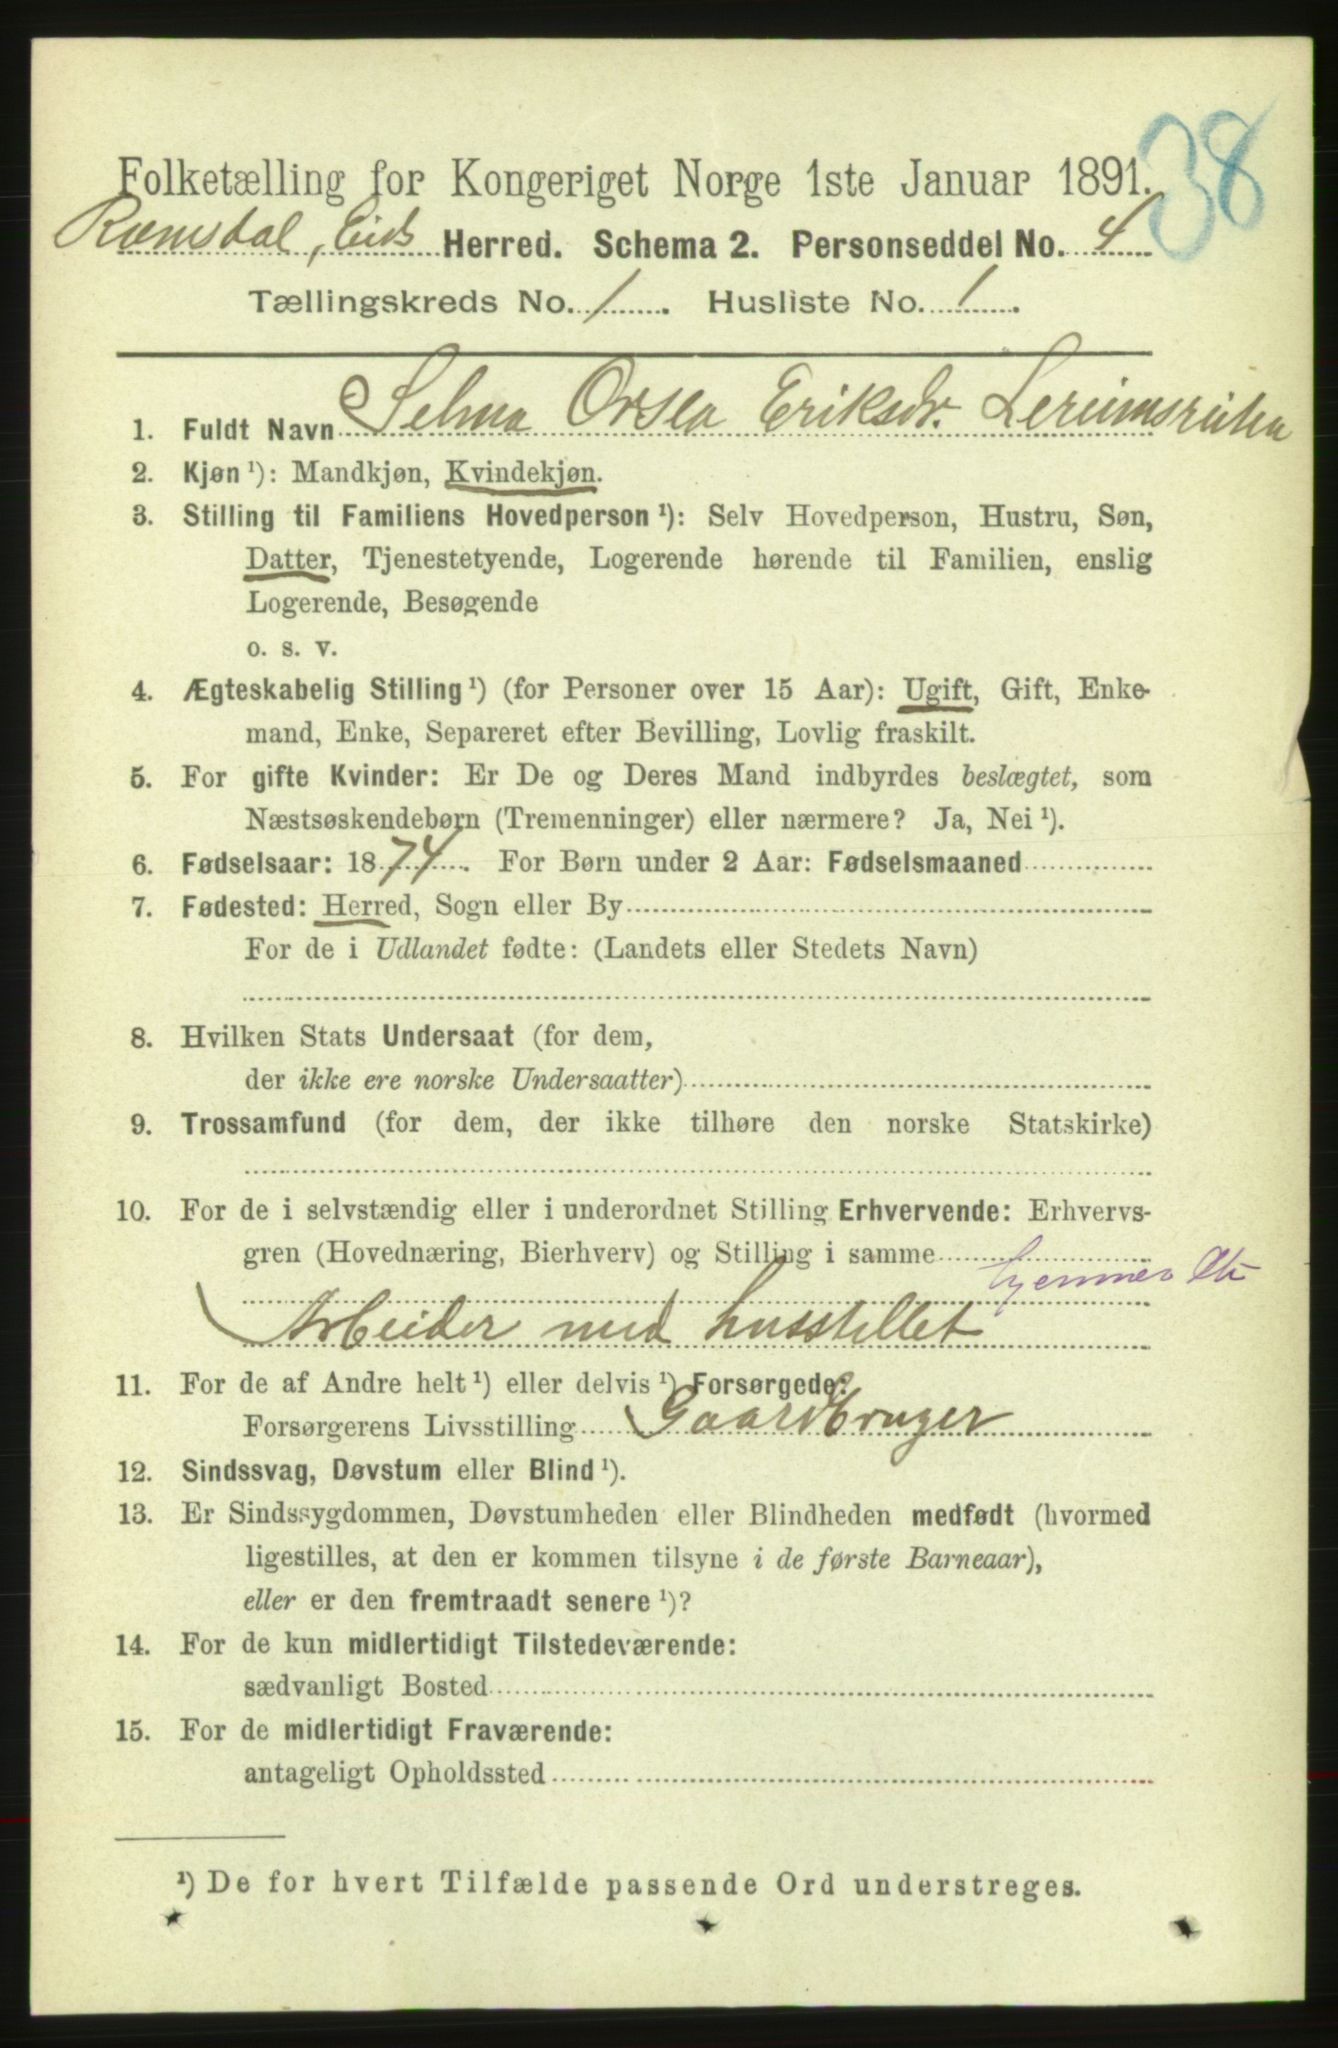 38
Folketælling for Kongeriget Norge 1ste Januar 1891.
Romsdal, Eids Herred. Schema 2. Personseddel No. 4
Tællingskreds No. 1. Husliste No. 1.
1. Fuldt Navn Selma Eriksdr.
2. Kjøn ¹): Mandkjøn, Kvindekjøn.
3. Stilling til Familiens Hovedperson ¹): Selv Hovedperson, Hustru, Søn,
Datter, Tjenestetyende, Logerende hørende til Familien, enslig
Logerende, Besøgende
o. s. v.
4. Ægteskabelig Stilling ¹) (for Personer over 15 Aar): Ugift, Gift, Enke-
mand, Enke, Separeret efter Bevilling, Lovlig fraskilt.
5. For gifte Kvinder: Er De og Deres Mand indbyrdes beslægtet, som
Næstsøskendebørn (Tremenninger) eller nærmere? Ja, Nei ¹).
6. Fødselsaar: 1874. For Børn under 2 Aar: Fødselsmaaned
7. Fødested: Herred, Sogn eller By
For de i Udlandet fødte: (Landets eller Stedets Navn)
8. Hvilken Stats Undersaat (for dem,
der ikke ere norske Undersaatter)
9. Trossamfund (for dem, der ikke tilhøre den norske Statskirke)
10. For de i selvstændig eller i underordnet Stilling Erhvervende: Erhvervs-
gren (Hovednæring, Bierhverv) og Stilling i samme
hjemmev
Arbeider med husstellet
11. For de af Andre helt ¹) eller delvis ¹) Forsørgede:
Forsørgerens Livsstilling Gaardbruger
12. Sindssvag, Døvstum eller Blind ¹).
13. Er Sindssygdommen, Døvstumheden eller Blindheden medfødt (hvormed
ligestilles, at den er kommen tilsyne i de første Barneaar),
eller er den fremtraadt senere ¹)?
14. For de kun midlertidigt Tilstedeværende:
sædvanligt Bosted
15. For de midlertidigt Fraværende:
antageligt Opholdssted
¹) De for hvert Tilfælde passende Ord understreges.